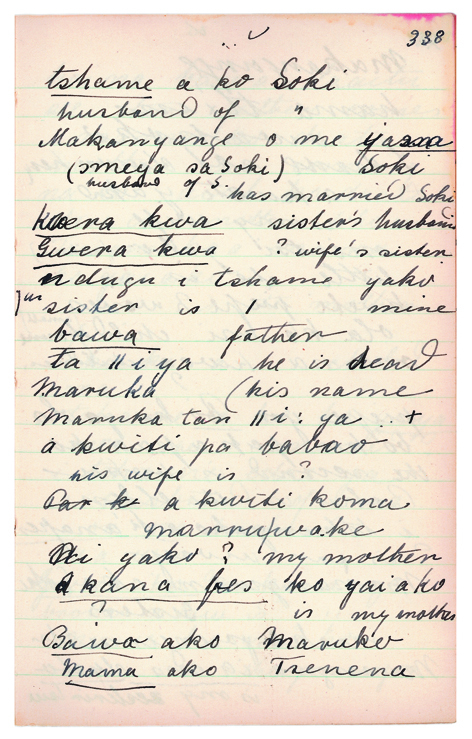 338
tshame a ko Soki
husband of "
Makanyange o me
(smeya sa Soki) Soki
husband of S. has married Soki
Kwera kwa sister's husband
Gwera kwa ? wife's sister
ndugu i tshame yako
sister is / mine
bawa father
ta || i ya he is dead
Maruka (his name
Maruka tan || i : ya . +
a kwiti pa babao
his wife is ?
a kwiti koma
marrupwake
yako ? my mother
Akana ko yaiako
? is my mother
Bawa ako Maruko
Mama ako Tsenena